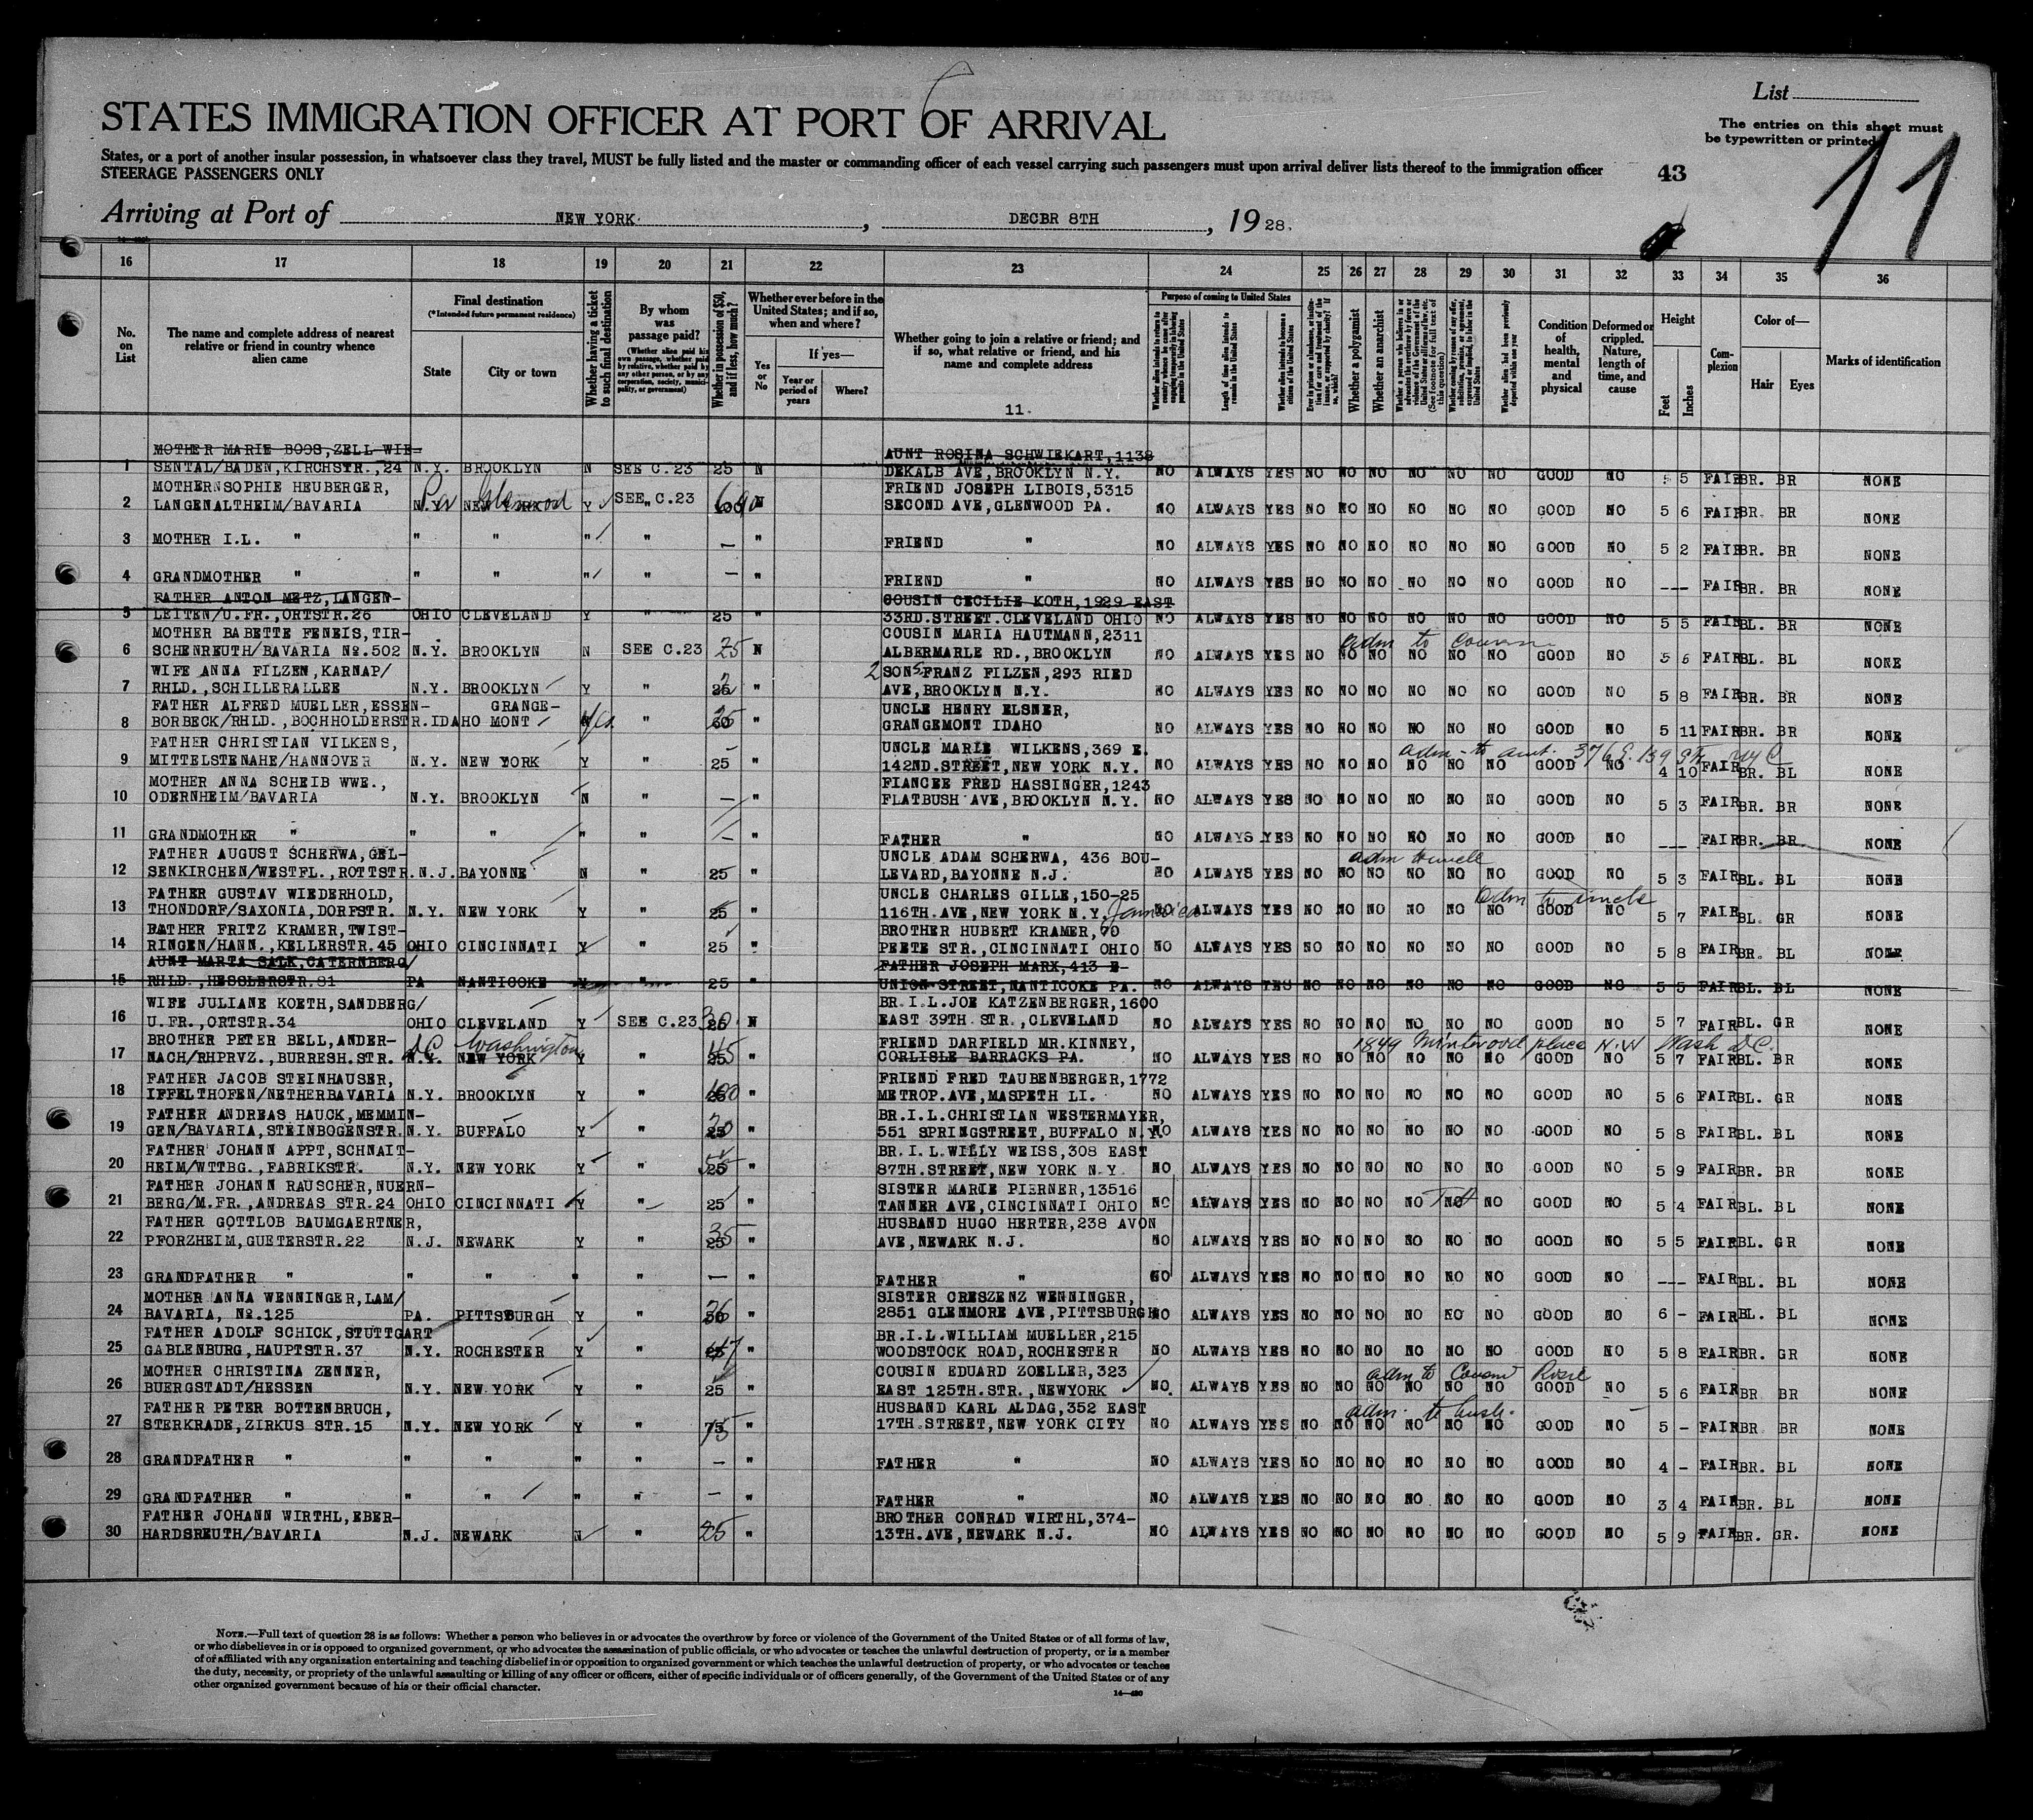 List
STATES IMMIGRATION OFFICER AT PORT OF ARRIVAL
The entries on this sheet must
be typewritten or printed
States, or a port of another insular possession, in whatsoever class they travel, MUST be fully listed and the master or commanding officer of each vessel carrying such passengers must upon arrival deliver lists thereof to the immigration officer
STEERAGE PASSENGERS ONLY
43
11
Arriving at Port of NEW YORK, DECBR 8TH, 1928.
16 17 18 19 20 21 22 23 24 25 26 27 28 29 30 31 32 33 34 35 36
No. on List
The name and complete address of nearest relative or friend in country whence alien came
Final destination
(*Intended future permanent residence)
State
City or town
Whether having a ticket to such final destination
By whom was passage paid?
(Whether alien paid his own passage, whether paid by relative, whether paid by any other person, or by any corporation, society, municipality, or government)
Whether in possession of $50, and if less, how much?
Whether ever before in the United States; and if so, when and where?
Yes or No
If yes—
Year or period of years
Where?
Whether going to join a relative or friend; and if so, what relative or friend, and his name and complete address
11.
Purpose of coming to United States
Length of time alien intends to remain in the United States
Whether alien intends to become a citizen of the United States
Whether a polygamist
Whether an anarchist
Condition of health, mental and physical
Deformed or crippled. Nature, length of time, and cause
Height
Feet
Inches
Complexion
Color of—
Hair
Eyes
Marks of identification
MOTHER MARIE BOOS,ZELL WIE- AUNT ROSINA SCHWIEKART,1138
1 SENTAL/BADEN,KIRCHSTR.,24 N.Y. BROOKLYN N SEE C.23 25 N DEKALB AVE,BROOKLYN N.Y. NO ALWAYS YES NO NO NO NO NO NO GOOD NO 5 5 FAIR BR. BR NONE
MOTHER SOPHIE HEUBERGER, Pa Glenwood FRIEND JOSEPH LIBOIS,5315
2 LANGENALTHEIM/BAVARIA N.Y. NEW YORK Y SEE C.23 " N SECOND AVE,GLENWOOD PA. NO ALWAYS YES NO NO NO NO NO NO GOOD NO 5 6 FAIR BR. BR NONE
3 MOTHER I.L. " " " " " — " FRIEND " NO ALWAYS YES NO NO NO NO NO NO GOOD NO 5 2 FAIR BR. BR NONE
4 GRANDMOTHER " " " " " — " FRIEND " NO ALWAYS YES NO NO NO NO NO NO GOOD NO --- FAIR BR. BR NONE
FATHER ANTON METZ,LANGEN- COUSIN CECILIE KOTH,1929 EAST
5 LEITEN/U.FR.,ORTSTR.26 OHIO CLEVELAND Y " 25 " 33RD.STREET.CLEVELAND OHIO NO ALWAYS YES NO NO NO NO NO NO GOOD NO 5 5 FAIR BL. BR NONE
MOTHER BABETTE FENEIS,TIR- COUSIN MARIA HAUTMANN,2311 adm to cousin
6 SCHENREUTH/BAVARIA No.502 N.Y. BROOKLYN N SEE C.23 25 N ALBERMARLE RD.,BROOKLYN NO ALWAYS YES NO NO NO NO NO NO GOOD NO 5 6 FAIR BL. BL NONE
WIFE ANNA FILZEN,KARNAP/ 2 SONS FRANZ FILZEN,293 RIED
7 RHLD.,SCHILLERALLEE N.Y. BROOKLYN Y " 25 " AVE,BROOKLYN N.Y. NO ALWAYS YES NO NO NO NO NO NO GOOD NO 5 8 FAIR BR. BR NONE
FATHER ALFRED MUELLER,ESSEN- GRANGE- UNCLE HENRY ELSNER,
8 BORBECK/RHLD.,BOCHHOLDERSTR. IDAHO MONT yes " 25 " GRANGEMONT IDAHO NO ALWAYS YES NO NO NO NO NO NO GOOD NO 5 11 FAIR BR. BR NONE
FATHER CHRISTIAN VILKENS, UNCLE MARIE WILKENS,369 E. adm - to aunt. 376 E. 139 St. NYC
9 MITTELSTENAHE/HANNOVER N.Y. NEW YORK Y " 25 " 142ND.STREET,NEW YORK N.Y. NO ALWAYS YES NO NO NO NO NO NO GOOD NO 4 10 FAIR BR. BL NONE
MOTHER ANNA SCHEIB WWE., FIANCEE FRED HASSINGER,1243
10 ODERNHEIM/BAVARIA N.Y. BROOKLYN N " — " FLATBUSH AVE,BROOKLYN N.Y. NO ALWAYS YES NO NO NO NO NO NO GOOD NO 5 3 FAIR BR. BR NONE
11 GRANDMOTHER " " " " " — " FATHER " NO ALWAYS YES NO NO NO NO NO NO GOOD NO --- FAIR BR. BR. NONE
FATHER AUGUST SCHERWA,GEL- UNCLE ADAM SCHERWA, 436 BOU- adm
12 SENKIRCHEN/WESTFL.,ROTTSTR. N.J. BAYONNE N " 25 " LEVARD,BAYONNE N.J. NO ALWAYS YES NO NO NO NO NO NO GOOD NO 5 3 FAIR BL. BL NONE
FATHER GUSTAV WIEDERHOLD, UNCLE CHARLES GILLE,150-25 adm to uncle
13 THONDORF/SAXONIA,DORFSTR. N.Y. NEW YORK Y " 25 " 116TH.AVE,NEW YORK N.Y. Jamaica NO ALWAYS YES NO NO NO NO NO NO GOOD NO 5 7 FAIR BL. GR NONE
FATHER FRITZ KRAMER,TWIST- BROTHER HUBERT KRAMER,70
14 RINGEN/HANN.,KELLERSTR.45 OHIO CINCINNATI Y " 25 " PEETE STR.,CINCINNATI OHIO NO ALWAYS YES NO NO NO NO NO NO GOOD NO 5 8 FAIR BR. BL NONE
AUNT MARTA SALK,CATERNBERG/ FATHER JOSEPH MARX,413 E-
15 RHLD.,HESSLERSTR.81 PA NANTICOKE " 25 " UNION STREET,NANTICOKE PA. NO ALWAYS YES NO NO NO NO NO NO GOOD NO 5 5 FAIR BL. BL NONE
WIFE JULIANE KOETH,SANDBERG/ BR.I.L.JOE KATZENBERGER,1600
16 U.FR.,ORTSTR.34 OHIO CLEVELAND Y SEE C.23 30 N EAST 39TH.STR.,CLEVELAND NO ALWAYS YES NO NO NO NO NO NO GOOD NO 5 7 FAIR BL. GR NONE
BROTHER PETER BELL,ANDER- DC Washington FRIEND DARFIELD MR.KINNEY, 1849 Mintwood place N.W Wash DC.
17 NACH/RHPRVZ.,BURRESH.STR. N.Y. NEW YORK Y " 45 " CORLISLE BARRACKS PA. NO ALWAYS YES NO NO NO NO NO NO GOOD NO 5 7 FAIR BL. BR NONE
FATHER JACOB STEINHAUSER, FRIEND FRED TAUBENBERGER,1772
18 IFFELTHOFEN/NETHERBAVARIA N.Y. BROOKLYN Y " 100 " METROP.AVE,MASPETH LI. NO ALWAYS YES NO NO NO NO NO NO GOOD NO 5 6 FAIR BL. GR NONE
FATHER ANDREAS HAUCK,MEMMIN- BR.I.L.CHRISTIAN WESTERMAYER,
19 GEN/BAVARIA,STEINBOGENSTR. N.Y. BUFFALO Y " 25 " 551 SPRINGSTREET,BUFFALO N.Y. NO ALWAYS YES NO NO NO NO NO NO GOOD NO 5 8 FAIR BL. BL NONE
FATHER JOHANN APPT,SCHNAIT- BR.I.L.WILLY WEISS,308 EAST
20 HEIM/WTTBG.,FABRIKSTR. N.Y. NEW YORK Y " 25 " 87TH.STREET,NEW YORK N.Y. NO ALWAYS YES NO NO NO NO NO NO GOOD NO 5 9 FAIR BR. BR NONE
FATHER JOHANN RAUSCHER,NUERN- SISTER MARIE PIERNER,13516
21 BERG/M.FR.,ANDREAS STR.24 OHIO CINCINNATI Y " 25 " TANNER AVE,CINCINNATI OHIO NO ALWAYS YES NO NO NO NO NO NO GOOD NO 5 4 FAIR BL. BL NONE
FATHER GOTTLOB BAUMGAERTNER, HUSBAND HUGO HERTER,238 AVON
22 PFORZHEIM,GUETERSTR.22 N.J. NEWARK Y " 35 " AVE,NEWARK N.J. NO ALWAYS YES NO NO NO NO NO NO GOOD NO 5 5 FAIR BL. GR NONE
23 GRANDFATHER " " " " " — " FATHER " NO ALWAYS YES NO NO NO NO NO NO GOOD NO --- FAIR BL. BL NONE
MOTHER ANNA WENNINGER,LAM/ SISTER CRESZENZ WENNINGER,
24 BAVARIA, No.125 PA. PITTSBURGH Y " " 2851 GLENMORE AVE,PITTSBURGH NO ALWAYS YES NO NO NO NO NO NO GOOD NO 6 - FAIR BL. BL NONE
FATHER ADOLF SCHICK,STUTTGART BR.I.L.WILLIAM MUELLER,215
25 GABLENBURG,HAUPTSTR.37 N.Y. ROCHESTER Y " " WOODSTOCK ROAD,ROCHESTER NO ALWAYS YES NO NO NO NO NO NO GOOD NO 5 8 FAIR BR. GR NONE
MOTHER CHRISTINA ZENNER, COUSIN EDUARD ZOELLER,323 adm to Cousin Rosie
26 BUERGSTADT/HESSEN N.Y. NEW YORK Y " 25 " EAST 125TH.STR.,NEWYORK NO ALWAYS YES NO NO NO NO NO NO GOOD NO 5 6 FAIR BR BR NONE
FATHER PETER BOTTENBRUCH, HUSBAND KARL ALDAG,352 EAST adm. to husb.
27 STERKRADE,ZIRKUS STR.15 N.Y. NEW YORK Y " 75 " 17TH.STREET,NEW YORK CITY NO ALWAYS YES NO NO NO NO NO NO GOOD NO 5 - FAIR BR BR NONE
28 GRANDFATHER " " " " " — " FATHER " NO ALWAYS YES NO NO NO NO NO NO GOOD NO 4 - FAIR BR. BL NONE
29 GRANDFATHER " " " " " — " FATHER " NO ALWAYS YES NO NO NO NO NO NO GOOD NO 3 4 FAIR BR. BL NONE
FATHER JOHANN WIRTHL,EBER- BROTHER CONRAD WIRTHL,374-
30 HARDSREUTH/BAVARIA N.J. NEWARK N " 25 " 13TH.AVE,NEWARK N.J. NO ALWAYS YES NO NO NO NO NO NO GOOD NO 5 9 FAIR BR. GR. NONE
NOTE.—Full text of question 28 is as follows: Whether a person who believes in or advocates the overthrow by force or violence of the Government of the United States or of all forms of law,
or who disbelieves in or is opposed to organized government, or who advocates the assassination of public officials, or who advocates or teaches the unlawful destruction of property, or is a member
of or affiliated with any organization entertaining and teaching disbelief in or opposition to organized government or which teaches the unlawful destruction of property, or who advocates or teaches
the duty, necessity, or propriety of the unlawful assaulting or killing of any officer or officers, either of specific individuals or of officers generally, of the Government of the United States or of any
other organized government because of his or their official character.
14—480